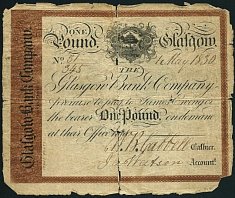 ONE
Pound. Glasgow
No 51/345 4 May 1830
THE
Glasgow Bank Company
promise to pay to James
the bearer One Pound on demand
at their Office
Cashier.
J. Watson Account.
Glasgow Bank Company.